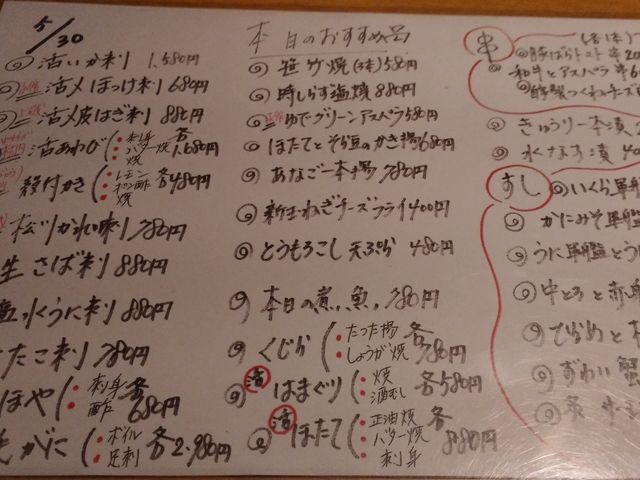 5/30
活いか刺 1.580円
活〆ほっけ刺 680円
活〆皮はぎ刺 880円
活あわび 刺身 バター焼 焼 各1.680円
殻付かき レモン ポン酢 焼 各480円
松川かれい刺 780円
生さば刺 880円
塩水うに刺 880円
たこ刺 780円
ほや 刺身 酢 各680円
毛がに ボイル 足刺 各2.980円
本日のおすすめ
笹竹焼(3本)580円
時しらず塩焼 880円
ゆでグリーンアスパラ580円
ほたてとそら豆のかき揚680円
あなご一本揚 780円
新玉ねぎチーズフライ400円
とうもろこし天ぷら 480円
本日の煮魚 780円
くじら たつた揚 しょうが焼 各780円
活 はまぐり 焼 酒むし 各580円
活 ほたて 正油焼 バター焼 刺身 各880円
串
豚ばらトマト串20
和牛とアスパラ串6
きゅうり一本漬
水なす漬 40
すし
いくら軍艦
かにみそ軍艦
うに軍艦とう
中とろと赤身
ずわい蟹